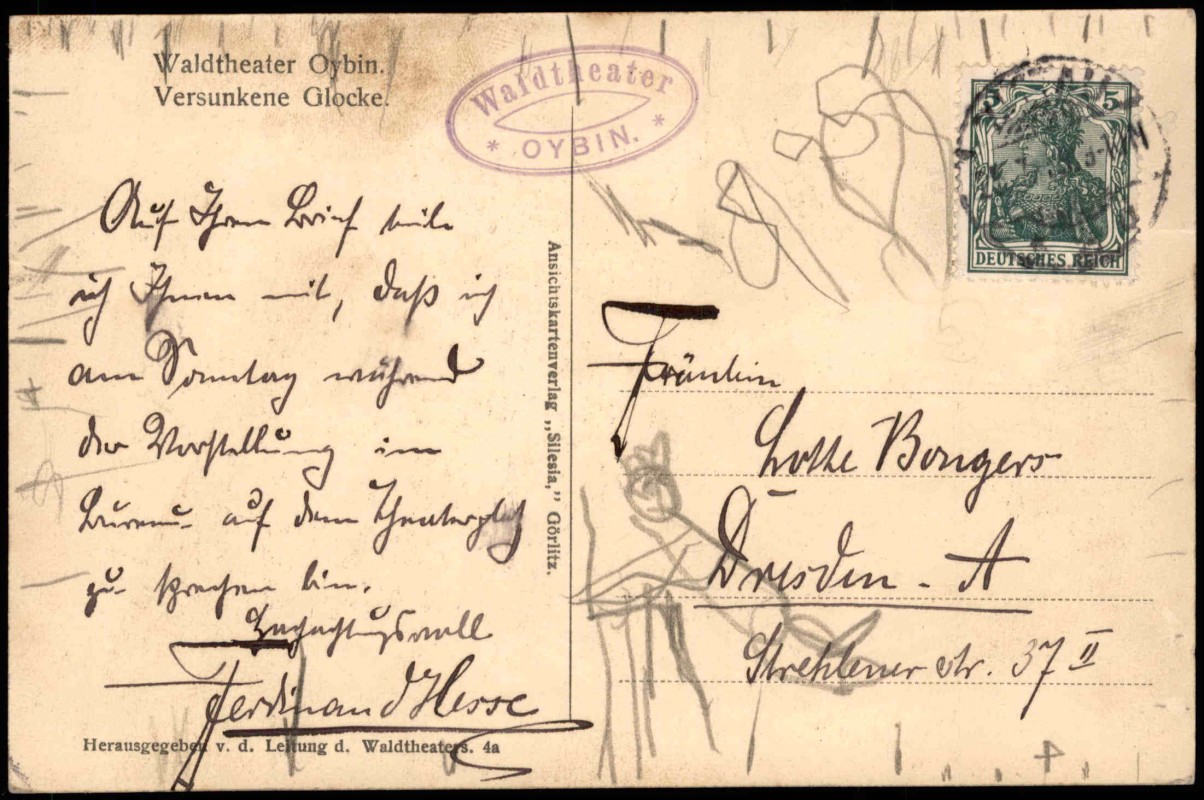 Waldtheater Oybin.
Versunkene Glocke.
Waldtheater
* OYBIN. *
5 5
DEUTSCHES REICH
Auf Ihren Brief teile
ich Ihnen mit, daß ich
am Sonntag während
der Vorstellung im
Bureau auf dem Theaterplatz
zu sprechen bin.
Hochachtungsvoll
Ferdinand Hesse
Herausgegeben v. d. Leitung d. Waldtheaters. 4a
Ansichtskartenverlag „Silesia,” Görlitz.
Fräulein
Lotte Bongers
Dresden - A
Strehlener str. 37 II
4